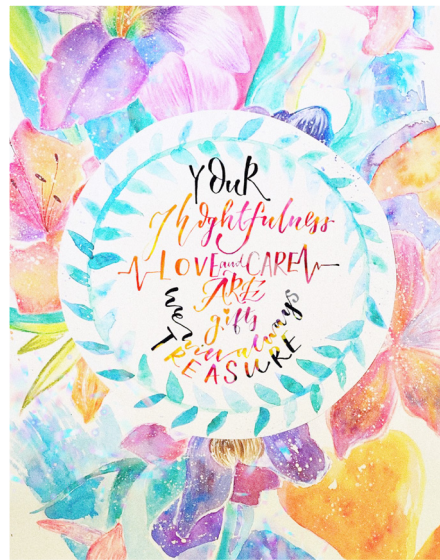 YOUR
Thoghtfulness
LOVE and CARE
ARE
gifts
we will always
TREASURE